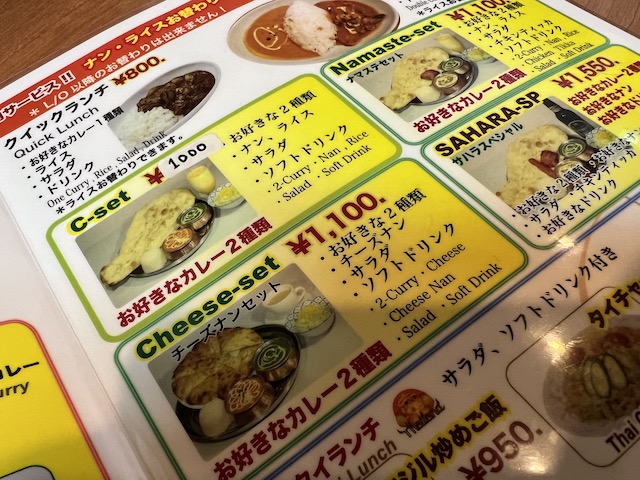 サービス!! ナン・ライスお替わり
＊L/O以降のお替わりは出来ません！
クイックランチ ¥800.
Quick Lunch
・お好きなカレー1種類
・ライス
・サラダ
・ドリンク
One Curry, Rice, Salad, Drink
＊ライスお替わりできます。
C-set
大 1000
お好きなカレー2種類
お好きな2種類
・ナン・ライス
・サラダ
・ソフトドリンク
・2-Curry・Nan・Rice
Salad・Soft Drink
Cheese-set
大¥1,100.
チーズナンセット
お好きなカレー2種類
お好きな2種類
・チーズナン
・サラダ
・ソフトドリンク
・2-Curry・Cheese
Cheese Nan
Salad・Soft Drink
Namaste-set
¥1,100.
ナマステセット
お好きなカレー2種類
お好きな2種類
・ナン・ライス
・サラダ
・チキンティッカ
・ソフトドリンク
・2-Curry・Nan・Rice
Chicken Tikka
Salad・Soft Drink
SAHARA-SP
¥1,550.
サハラスペシャル
お好きなカレー2種類
・お好きな2種類
・サラダ・チキンティッカ
・お好きなドリンク
カレー
urry
タイランチ
Lunch
Thailand
サラダ、ソフトドリンク付き
ジル炒めご飯
¥950.
タイチャ
Thai